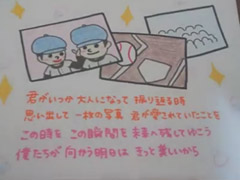 君がいつか 大人になって 振り返る時
思い出して 一枚の写真 君が愛されていたことを
この時を この瞬間を 未来へ残してゆこう
僕たちが 向かう明日は きっと美しいから